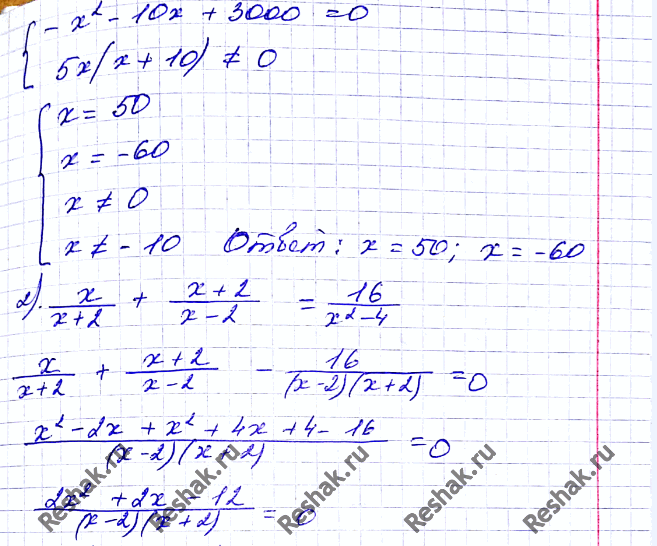 { - x² - 10x + 3000 = 0
5x(x + 10) ≠ 0
{ x = 50
x = -60
x ≠ 0
x ≠ - 10 Ответ: x = 50; x = -60
2). x/(x+2) + (x+2)/(x-2) = 16/(x²-4)
x/(x+2) + (x+2)/(x-2) - 16/((x-2)(x+2)) = 0
(x² - 2x + x² + 4x + 4 - 16)/((x-2)(x+2)) = 0
(2x² + 2x - 12)/((x-2)(x+2)) = 0
Reshak.ru Reshak.ru Reshak.ru Reshak.ru Reshak.ru